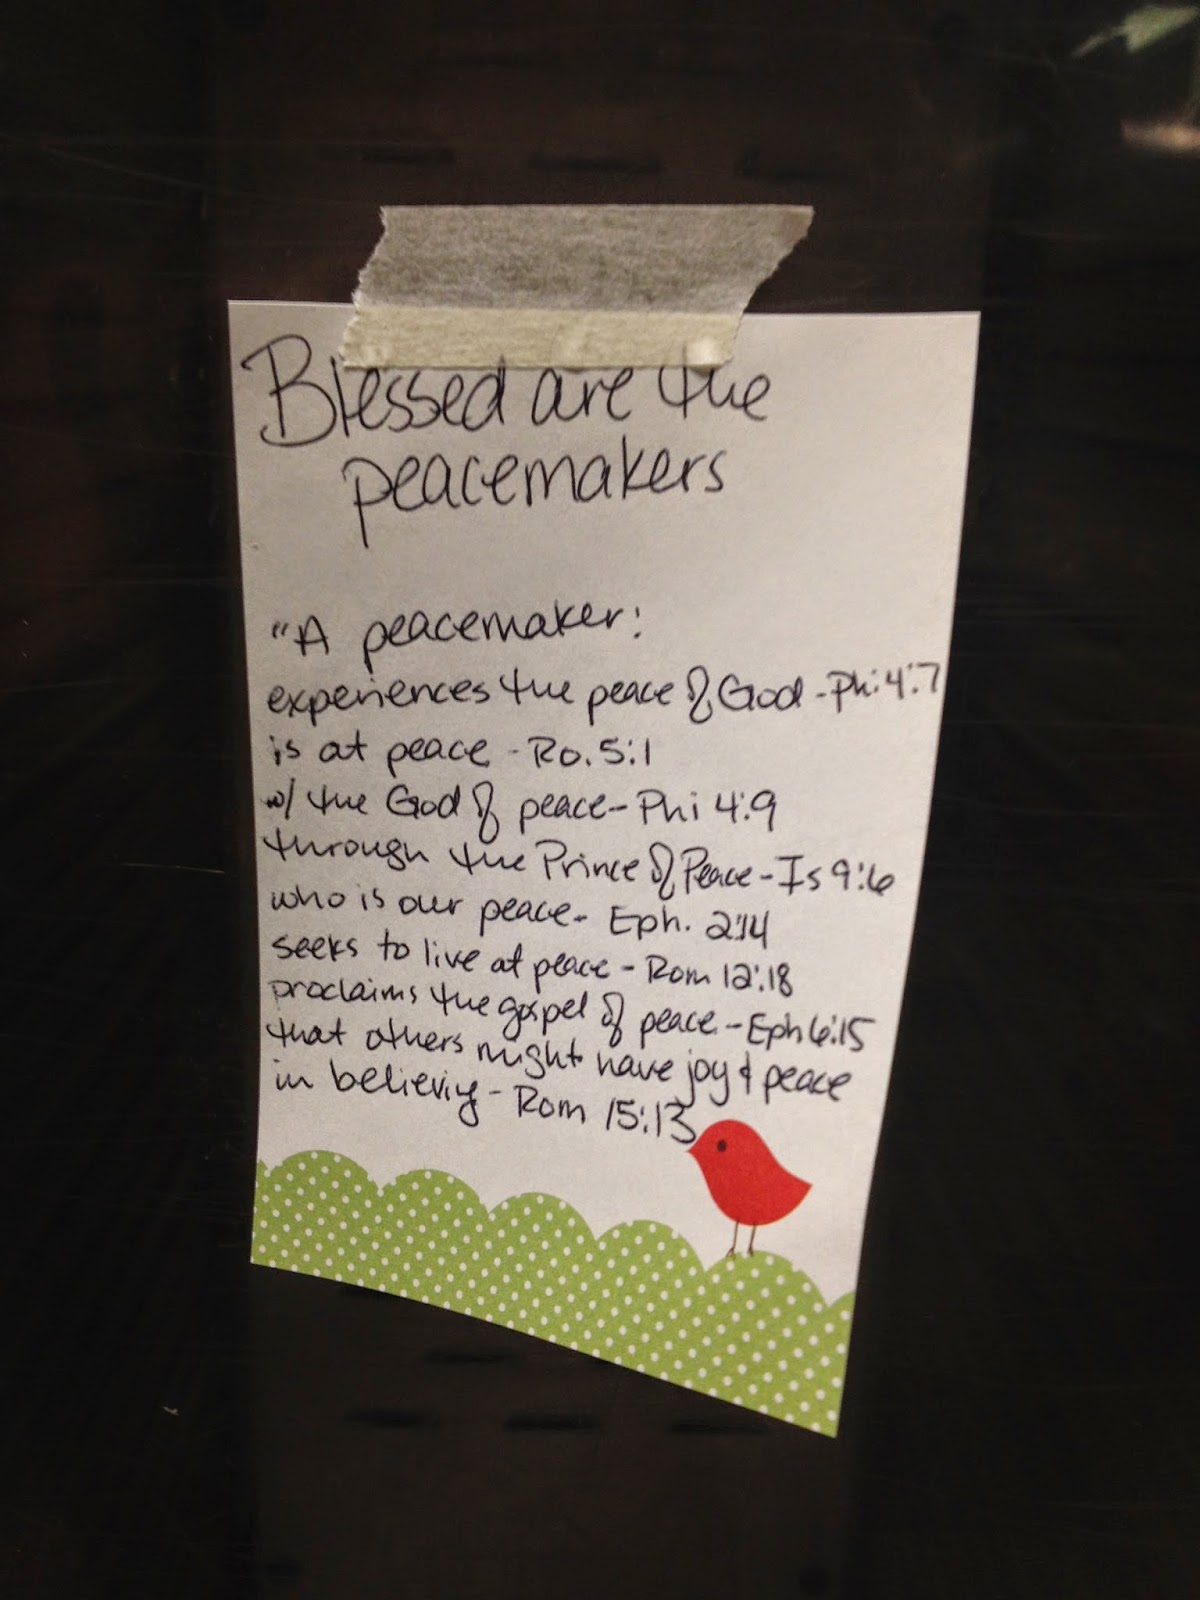 Blessed are the
peacemakers
"A peacemaker:
experiences the peace of God - Phi 4:7
is at peace - Ro. 5:1
w/ the God of peace - Phi 4:9
through the Prince of Peace - Is 9:6
who is our peace - Eph. 2:14
seeks to live at peace - Rom 12:18
proclaims the gospel of peace - Eph 6:15
that others might have joy & peace
in believing - Rom 15:13